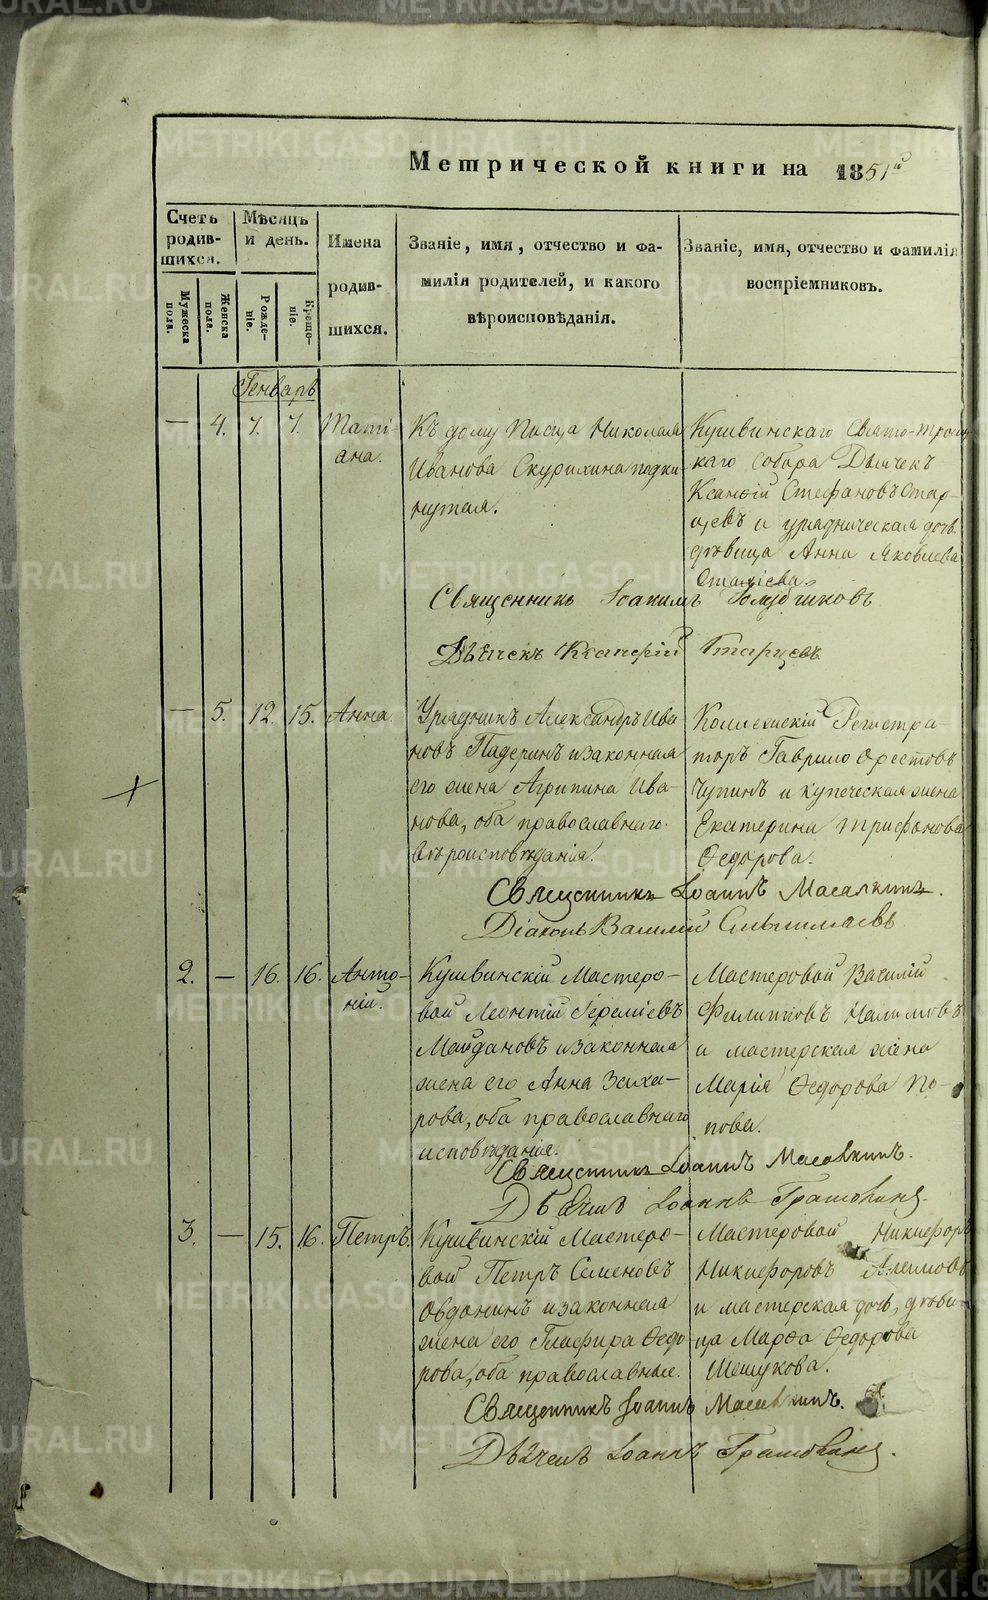 METRIKI.GASO-URAL.RU
Метрической книги на 1851й
Счетъ родив-шихся.
Мѣсяцъ и день.
Имена родив-шихся.
Званіе, имя, отчество и фа-
милія родителей, и какого
вѣроисповѣданія.
Званіе, имя, отчество и фамилія
воспріемниковъ.
Мужеска пола.
Женска пола.
Рожде-ніе.
Креще-ніе.
Генварь
— 4. 7. 7. Таті-
ана.
Къ дому Писца Николая
Иванова Скурихина подки
нутая.
Кушвинскаго Свято-Троиц
каго Собора Дьячекъ
Ксанфій Стефановъ Стар-
цевъ и урядническая дочь
дѣвица Анна Яковлева
Священникъ Іоакимъ
Дьячекъ Ксанфій Старцевъ
— 5. 12. 15. Анна.
Урядникъ Александръ Ива
новъ Падеринъ и законная
его жена Агрипина Ива-
нова, оба православнаго
вѣроисповѣданія.
Коллежскій Регистра-
торъ Гаврило Орестовъ
Чупинъ и купеческая жена
Екатерина Трифонова
Ѳедорова.
Священникъ Іоаннъ Масалкинъ.
Діаконъ Василій
2. — 16. 16. Анто-
ній.
Кушвинскій Мастеро-
вой Леонтій Іереміевъ
Майдановъ и законная
жена его Анна Заха-
рова, оба православнаго
исповѣданія.
Мастеровой Василій
Филиповъ Налимовъ
и мастерская жена
Марія Ѳедорова По-
пова.
Священникъ Іоаннъ Масалкинъ.
Дьячекъ Іоаннъ
3. — 15. 16. Петръ.
Кушвинскій Мастеро-
вой Петръ Семеновъ
Овдонинъ и законная
жена его Глафира Ѳедо
рова, оба православные.
Мастеровой Никифоръ
Никифоровъ
и мастерская дочь, дѣви-
ца Марѳа Ѳедорова
Шешукова.
Священникъ Іоаннъ Масалкинъ.
Дьячекъ Іоаннъ